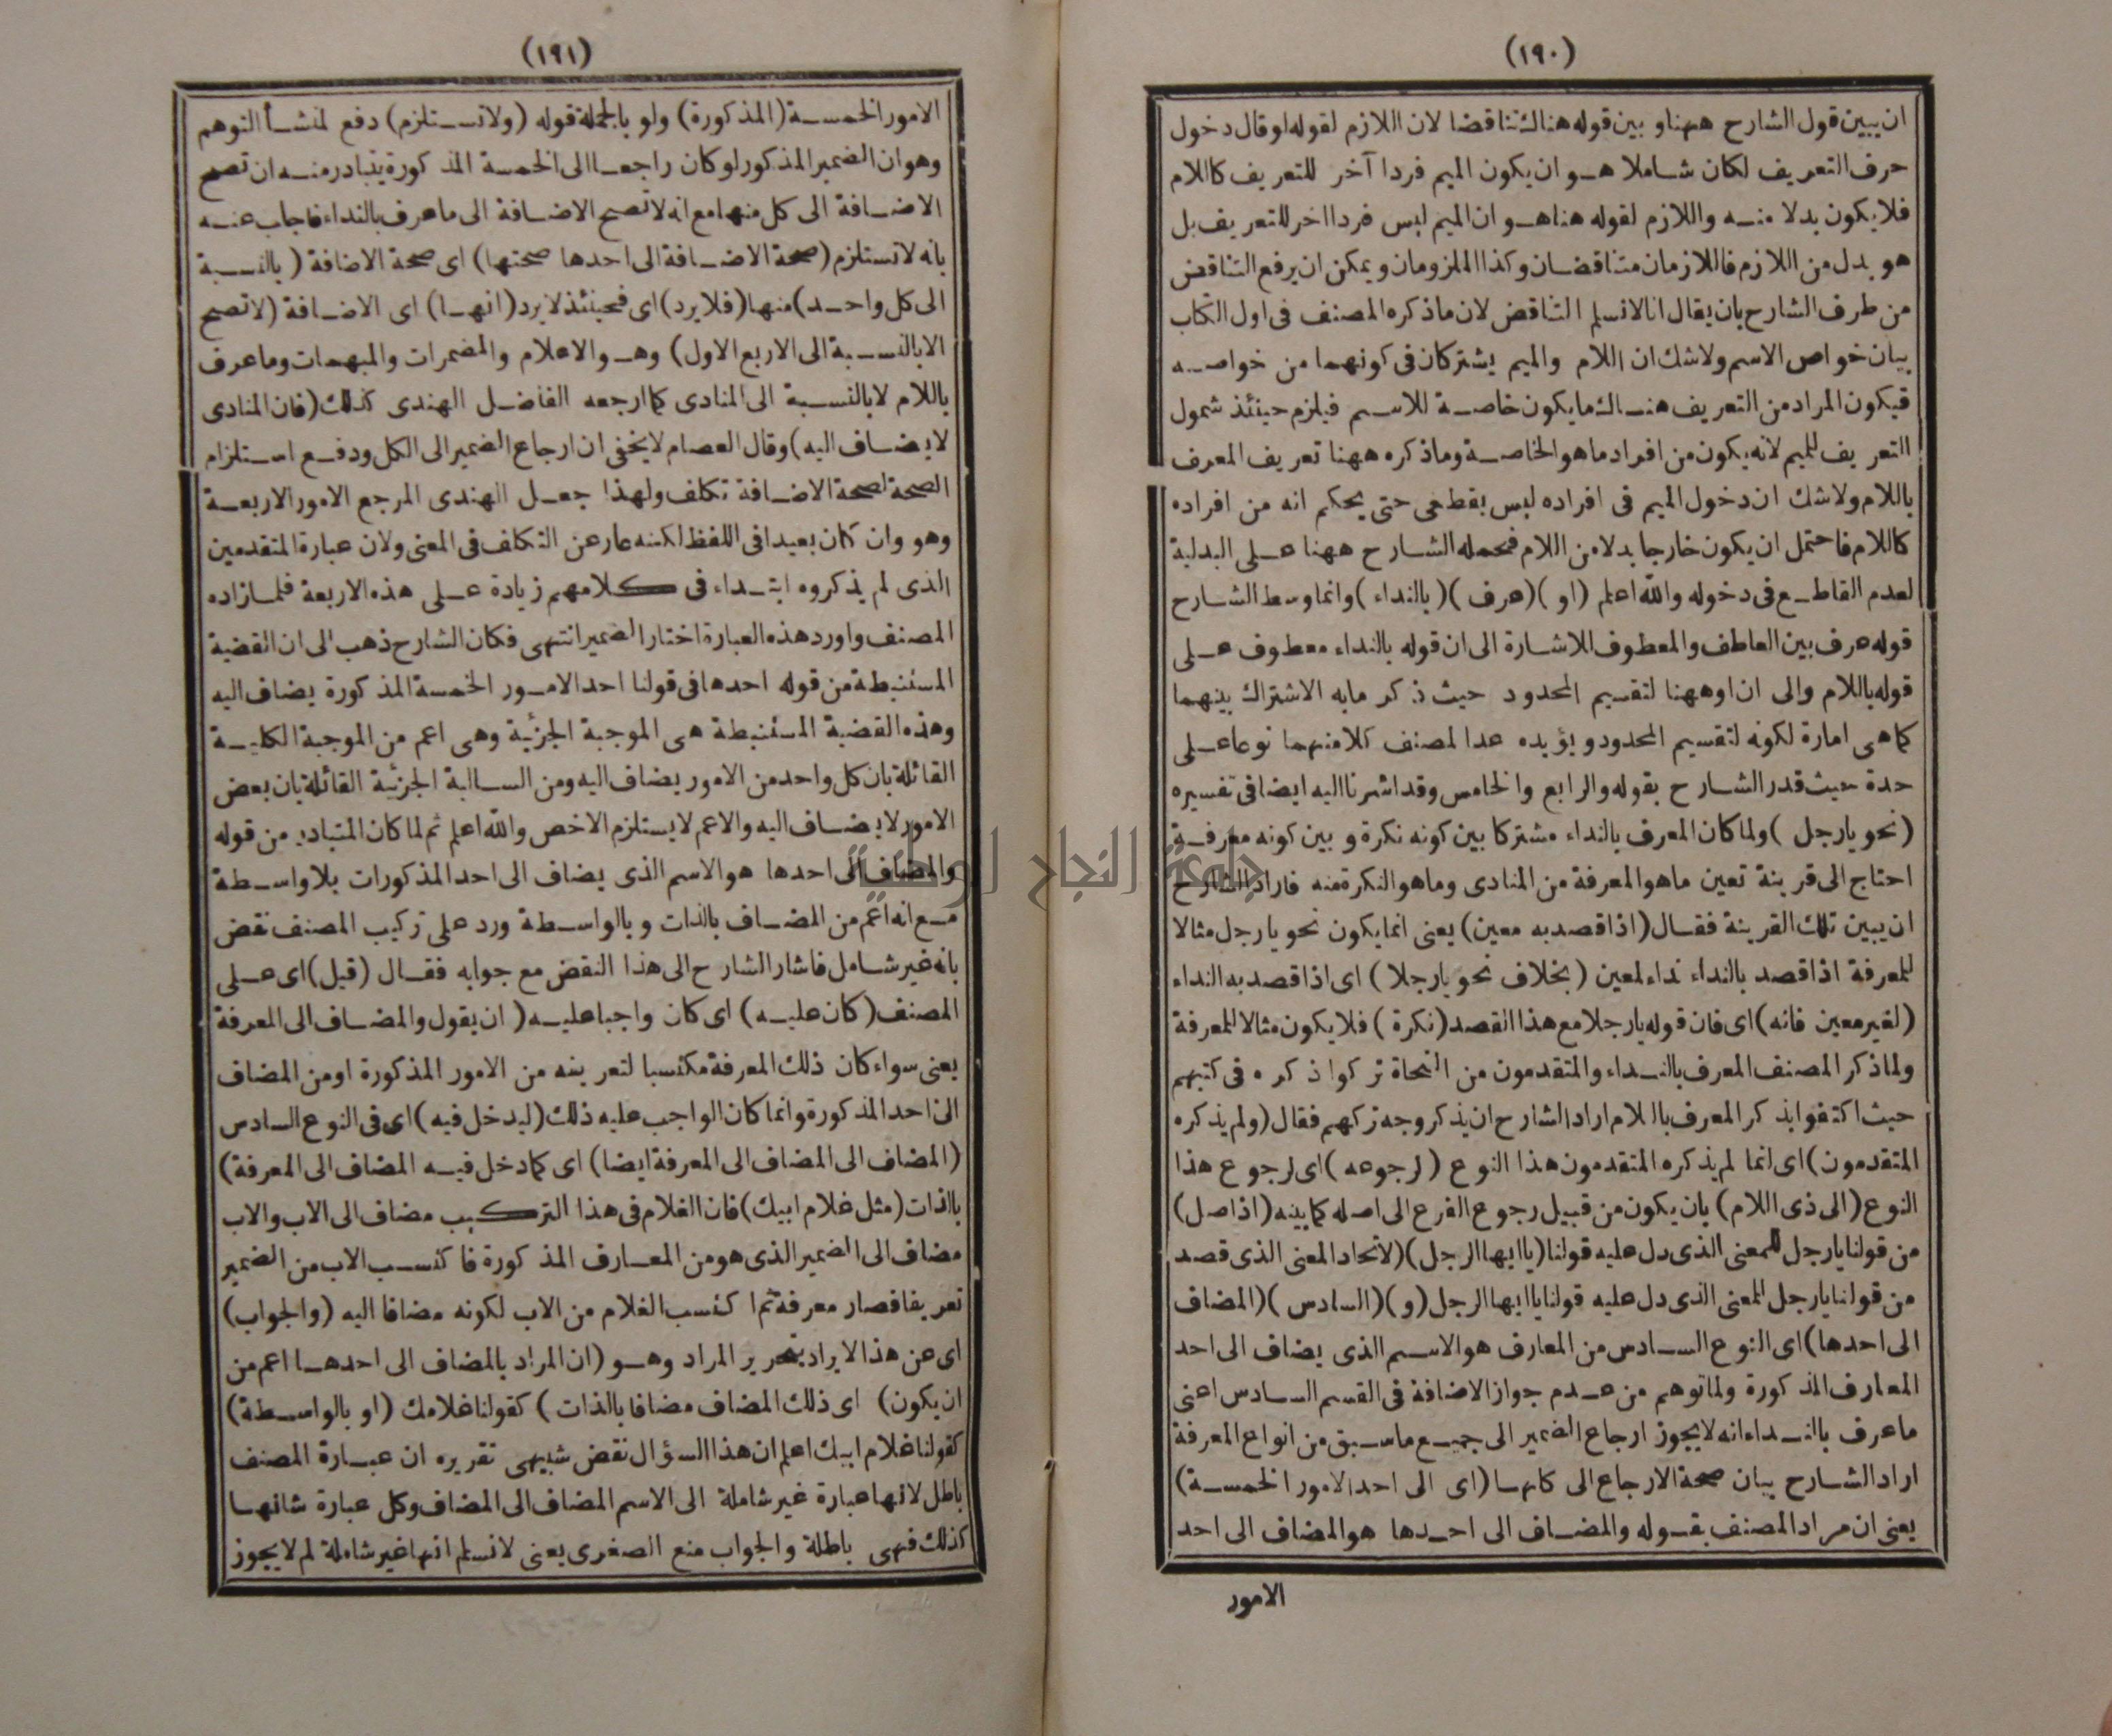 (١٩٠)
ان يبين قول الشارح ههنا وبين قوله هناك تناقضا لان اللازم لقوله او قال دخول
حرف التعريف لكان شاملا هو ان يكون الميم فردا آخر للتعريف كاللام
فلا يكون بدلا منه واللازم لقوله هنا هو ان الميم ليس فردا اخر للتعريف بل
هو بدل من اللازم فاللازمان متناقضان وكذا الملزومان ويمكن ان يرفع التناقض
من طرف الشارح بان يقال انا لا نسلم التناقض لان ما ذكره المصنف فى اول الكتاب
بيان خواص الاسم ولا شك ان اللام والميم يشتركان فى كونهما من خواصه
فيكون المراد من التعريف هناك ما يكون خاصة للاسم فيلزم حينئذ شمول
التعريف للميم لانه يكون من افراد ما هو الخاصة وما ذكره ههنا تعريف المعرف
باللام ولا شك ان دخول الميم فى افراده ليس بقطعى حتى يحكم انه من افراده
كاللام فاحتمل ان يكون خارجا بدلا من اللام فحمله الشارح ههنا على البدلية
لعدم القاطع فى دخوله والله اعلم (او) (عرف) (بالنداء) وانما وسط الشارح
قوله عرف بين العاطف والمعطوف للاشارة الى ان قوله بالنداء معطوف على
قوله باللام والى ان او ههنا لتقسيم المحدود حيث ذكر ما به الاشتراك بينهما
كما هى امارة لكونه لتقسيم المحدود ويؤيده عد المصنف كلا منهما نوعا على
حدة حيث قدر الشارح بقوله والرابع والخامس وقد اشرنا اليه ايضا فى تفسيره
(نحو يا رجل) ولما كان المعرف بالنداء مشتركا بين كونه نكرة وبين كونه معرفة
احتاج الى قرينة تعين ما هو المعرفة من المنادى وما هو النكرة منه فاراد الشارح
ان يبين تلك القرينة فقال (اذا قصد به معين) يعنى انما يكون نحو يا رجل مثالا
للمعرفة اذا قصد بالنداء نداء لمعين (بخلاف نحو يا رجلا) اى اذا قصد به النداء
(لغير معين فانه) اى فان قوله يا رجلا مع هذا القصد (نكرة) فلا يكون مثالا للمعرفة
ولما ذكر المصنف المعرف بالنداء والمتقدمون من النحاة تركوا ذكره فى كتبهم
حيث اكتفوا بذكر المعرف باللام اراد الشارح ان يذكر وجه تركهم فقال (ولم يذكره
المتقدمون) اى انما لم يذكره المتقدمون هذا النوع (لرجوعه) اى لرجوع هذا
النوع (الى ذى اللام) بان يكون من قبيل رجوع الفرع الى اصله كما بينه (اذ اصل)
من قولنا يا رجل للمعنى الذى دل عليه قولنا (يا ايها الرجل) (لاتحاد المعنى الذى قصد
من قولنا يا رجل للمعنى الذى دل عليه قولنا يا ايها الرجل (و) (السادس) (المضاف
الى احدها) اى النوع السادس من المعارف هو الاسم الذى يضاف الى احد
المعارف المذكورة ولما توهم من عدم جواز الاضافة فى القسم السادس اعنى
ما عرف بالنداء انه لا يجوز ارجاع الضمير الى جميع ما سبق من انواع المعرفة
اراد الشارح بيان صحة الارجاع الى كلها (اى الى احد الامور الخمسة)
يعنى ان مراد المصنف بقوله والمضاف الى احدها هو المضاف الى احد
الامور
(١٩١)
الامور الخمسة (المذكورة) ولو بالجملة قوله (ولا تستلزم) دفع لمنشأ التوهم
وهو ان الضمير المذكور لو كان راجعا الى الخمسة المذكورة يتبادر منه ان تصح
الاضافة الى كل منها مع انه لا تصح الاضافة الى ما عرف بالنداء فاجاب عنه
بانه لا تستلزم (صحة الاضافة الى احدها صحتها) اى صحة الاضافة (بالنسبة
الى كل واحد) منها (فلا يرد) اى فحينئذ لا يرد (انها) اى الاضافة (لا تصح
الا بالنسبة الى الاربع الاول) وهو والاعلام والمضمرات والمبهمات وما عرف
باللام لا بالنسبة الى المنادى كما ارجعه الفاضل الهندى كذلك (فان المنادى
لا يضاف اليه) وقال العصام لا يخفى ان ارجاع الضمير الى الكل ودفع استلزام
الصحة لصحة الاضافة تكلف ولهذا جعل الهندى المرجع الامور الاربعة
وهو وان كان بعيدا فى اللفظ لكنه عار عن التكلف فى المعنى ولان عبارة المتقدمين
الذى لم يذكروه ابتداء فى كلامهم زيادة على هذه الاربعة فلما زاده
المصنف واورد هذه العبارة اختار الضمير انتهى فكان الشارح ذهب الى ان القضية
المستنبطة من قوله احدها فى قولنا احد الامور الخمسة المذكورة يضاف اليه
وهذه القضية المستنبطة هى الموجبة الجزئية وهى اعم من الموجبة الكلية
القائلة بان كل واحد من الامور يضاف اليه ومن السالبة الجزئية القائلة بان بعض
الامور لا يضاف اليه والاعم لا يستلزم الاخص والله اعلم ثم لما كان المتبادر من قوله
والمضاف الى احدها هو الاسم الذى يضاف الى احد المذكورات بلا واسطة
مع انه اعم من المضاف بالذات وبالواسطة ورد على تركيب المصنف نقض
بانه غير شامل فاشار الشارح الى هذا النقض مع جوابه فقال (قيل) اى على
المصنف (كان عليه) اى كان واجبا عليه (ان يقول والمضاف الى المعرفة
يعنى سواء كان ذلك المعرفة مكتسبا لتعريفه من الامور المذكورة او من المضاف
الى احد المذكورة وانما كان الواجب عليه ذلك (ليدخل فيه) اى فى النوع السادس
(المضاف الى المضاف الى المعرفة ايضا) اى كما دخل فيه المضاف الى المعرفة)
بالذات (مثل غلام ابيك) فان الغلام فى هذا التركيب مضاف الى الاب والاب
مضاف الى الضمير الذى هو من المعارف المذكورة فاكتسب الاب من الضمير
تعريفا فصار معرفة ثم اكتسب الغلام من الاب لكونه مضافا اليه (والجواب)
اى عن هذا الايراد بتحرير المراد وهو (ان المراد بالمضاف الى احدها اعم من
ان يكون) اى ذلك المضاف مضافا بالذات) كقولنا غلامك (او بالواسطة)
كقولنا غلام ابيك اعلم ان هذا السؤال نقض شبيهى تقريره ان عبارة المصنف
باطل لانها عبارة غير شاملة الى الاسم المضاف الى المضاف وكل عبارة شانها
كذلك فهى باطلة والجواب منع الصغرى يعنى لا نسلم انها غير شاملة لم لا يجوز
جامعة النجاح الوطنية